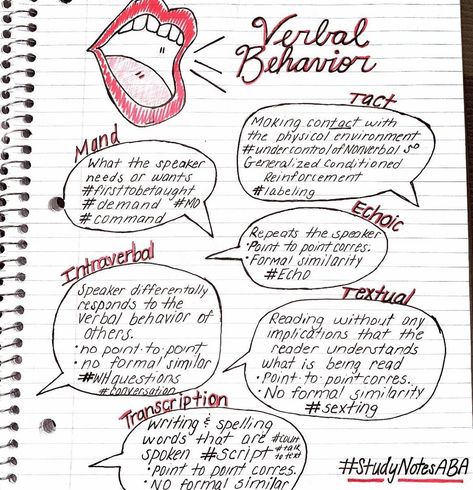 Verbal
Behavior
Mand
What the speaker
needs or wants
#firsttobetaught
#demand #MO
#command
Tact
Making contact with
the physical environment
#undercontrolofNonverbal SD
Generalized Conditioned
Reinforcement
#labeling
Echoic
Repeats the speaker
• Point to point corres.
• Formal similarity
#Echo
Intraverbal
Speaker differentally
responds to the
verbal behavior of
others.
• no point-to-point
• no formal similar
#WHquestions
#conversation
Textual
Reading without any
implications that the
reader understands
what is being read
• Point-to-point corres.
• No formal similarity
#sexting
Transcription
Writing & spelling
words that are #court
spoken #script #talk
to text
• Point to point corres.
• No formal similar
#StudyNotesABA